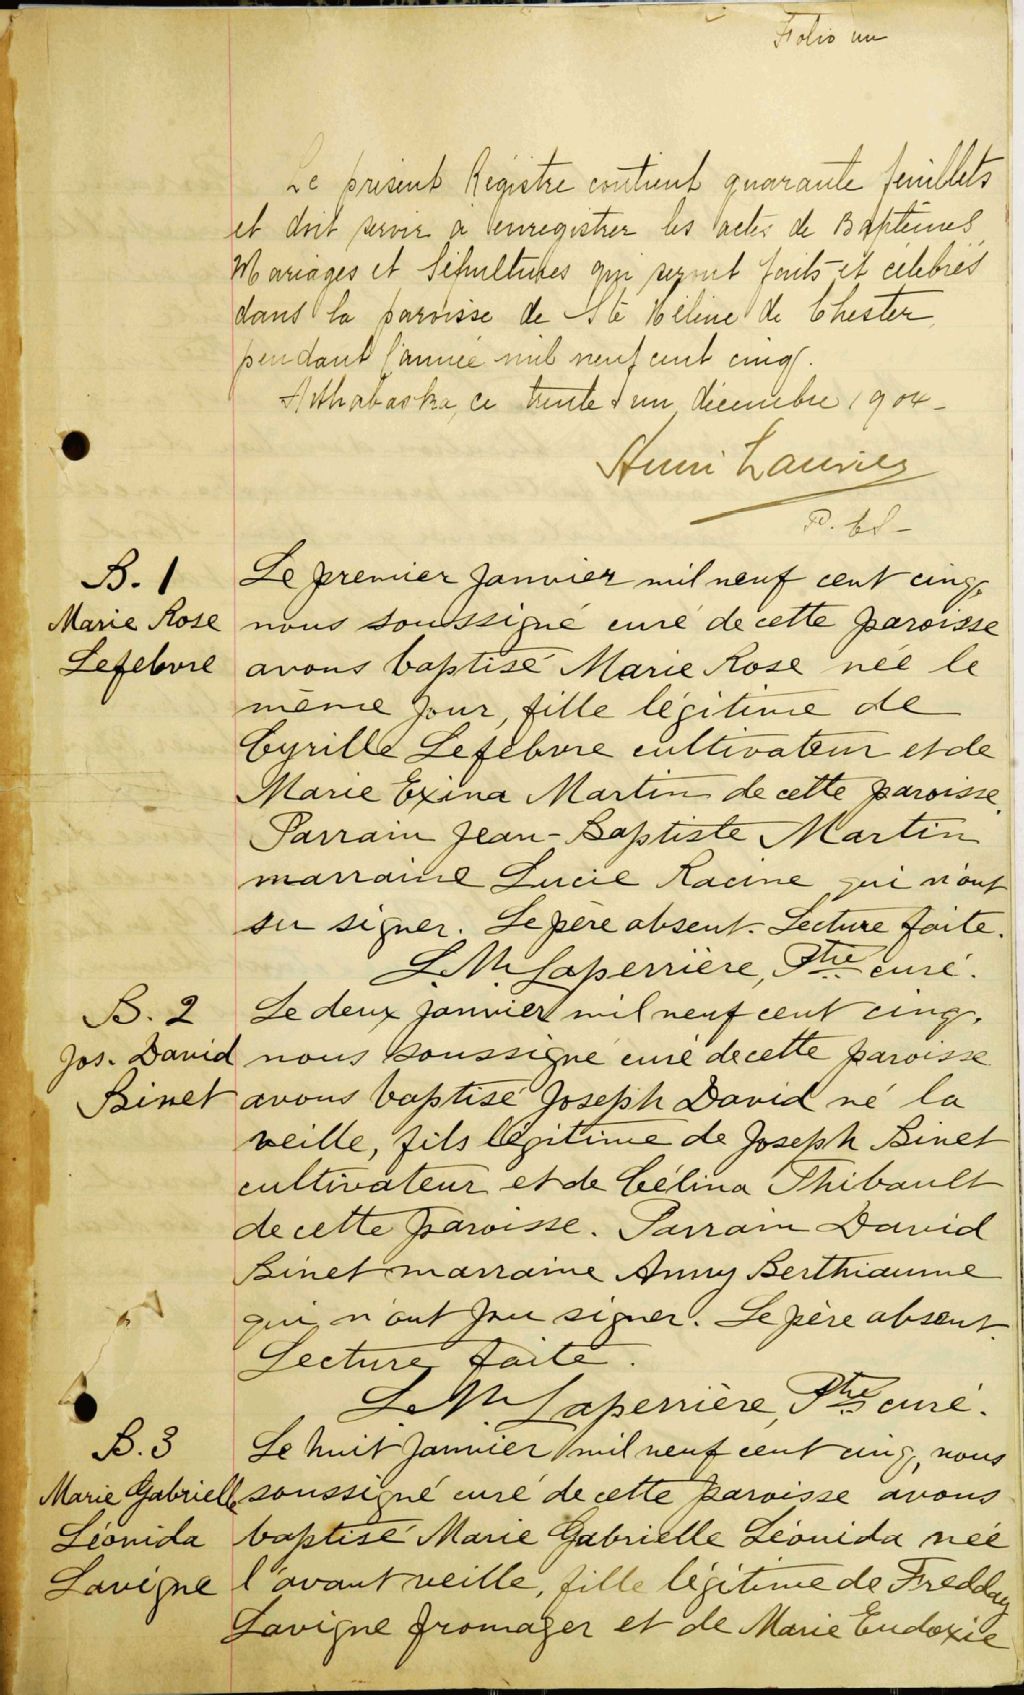 Folio un
Le présent Régistre contient quarante feuillets
et doit servir à enregistrer les actes de Baptêmes
Mariages et Sépultures qui seront faits et célébrés
dans la paroisse de Ste Hélène de Chester,
pendant l'année mil neuf cent cinq.
Arthabaska, ce trente & un décembre 1904-
Henri Laurier
P. C.S-
B. 1
Marie Rose
Lefebvre
Le premier janvier mil neuf cent cinq,
nous soussigné curé de cette paroisse
avons baptisé Marie Rose née le
même jour, fille légitime de
Cyrille Lefebvre cultivateur et de
Marie Exina Martin de cette paroisse.
Parrain Jean-Baptiste Martin
marraine Lucie Racine qui n'ont
su signer. Le père absent. Lecture faite.
L. M. Laperrière, Ptre curé.
B. 2
Jos. David
Binet
Le deux janvier mil neuf cent cinq,
nous soussigné curé de cette paroisse
avons baptisé Joseph David né la
veille, fils légitime de Joseph Binet
cultivateur et de Célina Thibault
de cette paroisse. Parrain David
Binet marraine Anny Berthiaume
qui n'ont pu signer. Le père absent.
Lecture faite.
L. M. Laperrière, Ptre curé.
B. 3
Marie Gabrielle
Léonida
Lavigne
Le huit janvier mil neuf cent cinq, nous
soussigné curé de cette paroisse avons
baptisé Marie Gabrielle Léonida née
l'avant veille, fille légitime de Fredday
Lavigne fromager et de Marie Eudoxie